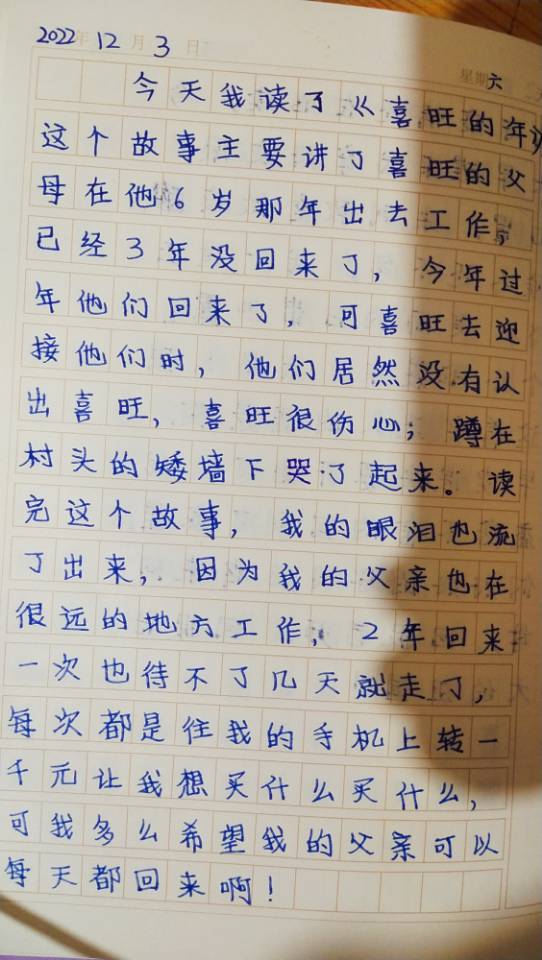 2022年12月3日 星期六
今天我读了《喜旺的年》
这个故事主要讲了喜旺的父
母在他6岁那年出去工作,
已经3年没回来了,今年过
年他们回来了,可喜旺去迎
接他们时,他们居然没有认
出喜旺,喜旺很伤心;蹲在
村头的矮墙下哭了起来。读
完这个故事,我的眼泪也流
了出来,因为我的父亲也在
很远的地方工作,2年回来
一次也待不了几天就走了,
每次都是往我的手机上转一
千元让我想买什么买什么,
可我多么希望我的父亲可以
每天都回来啊!